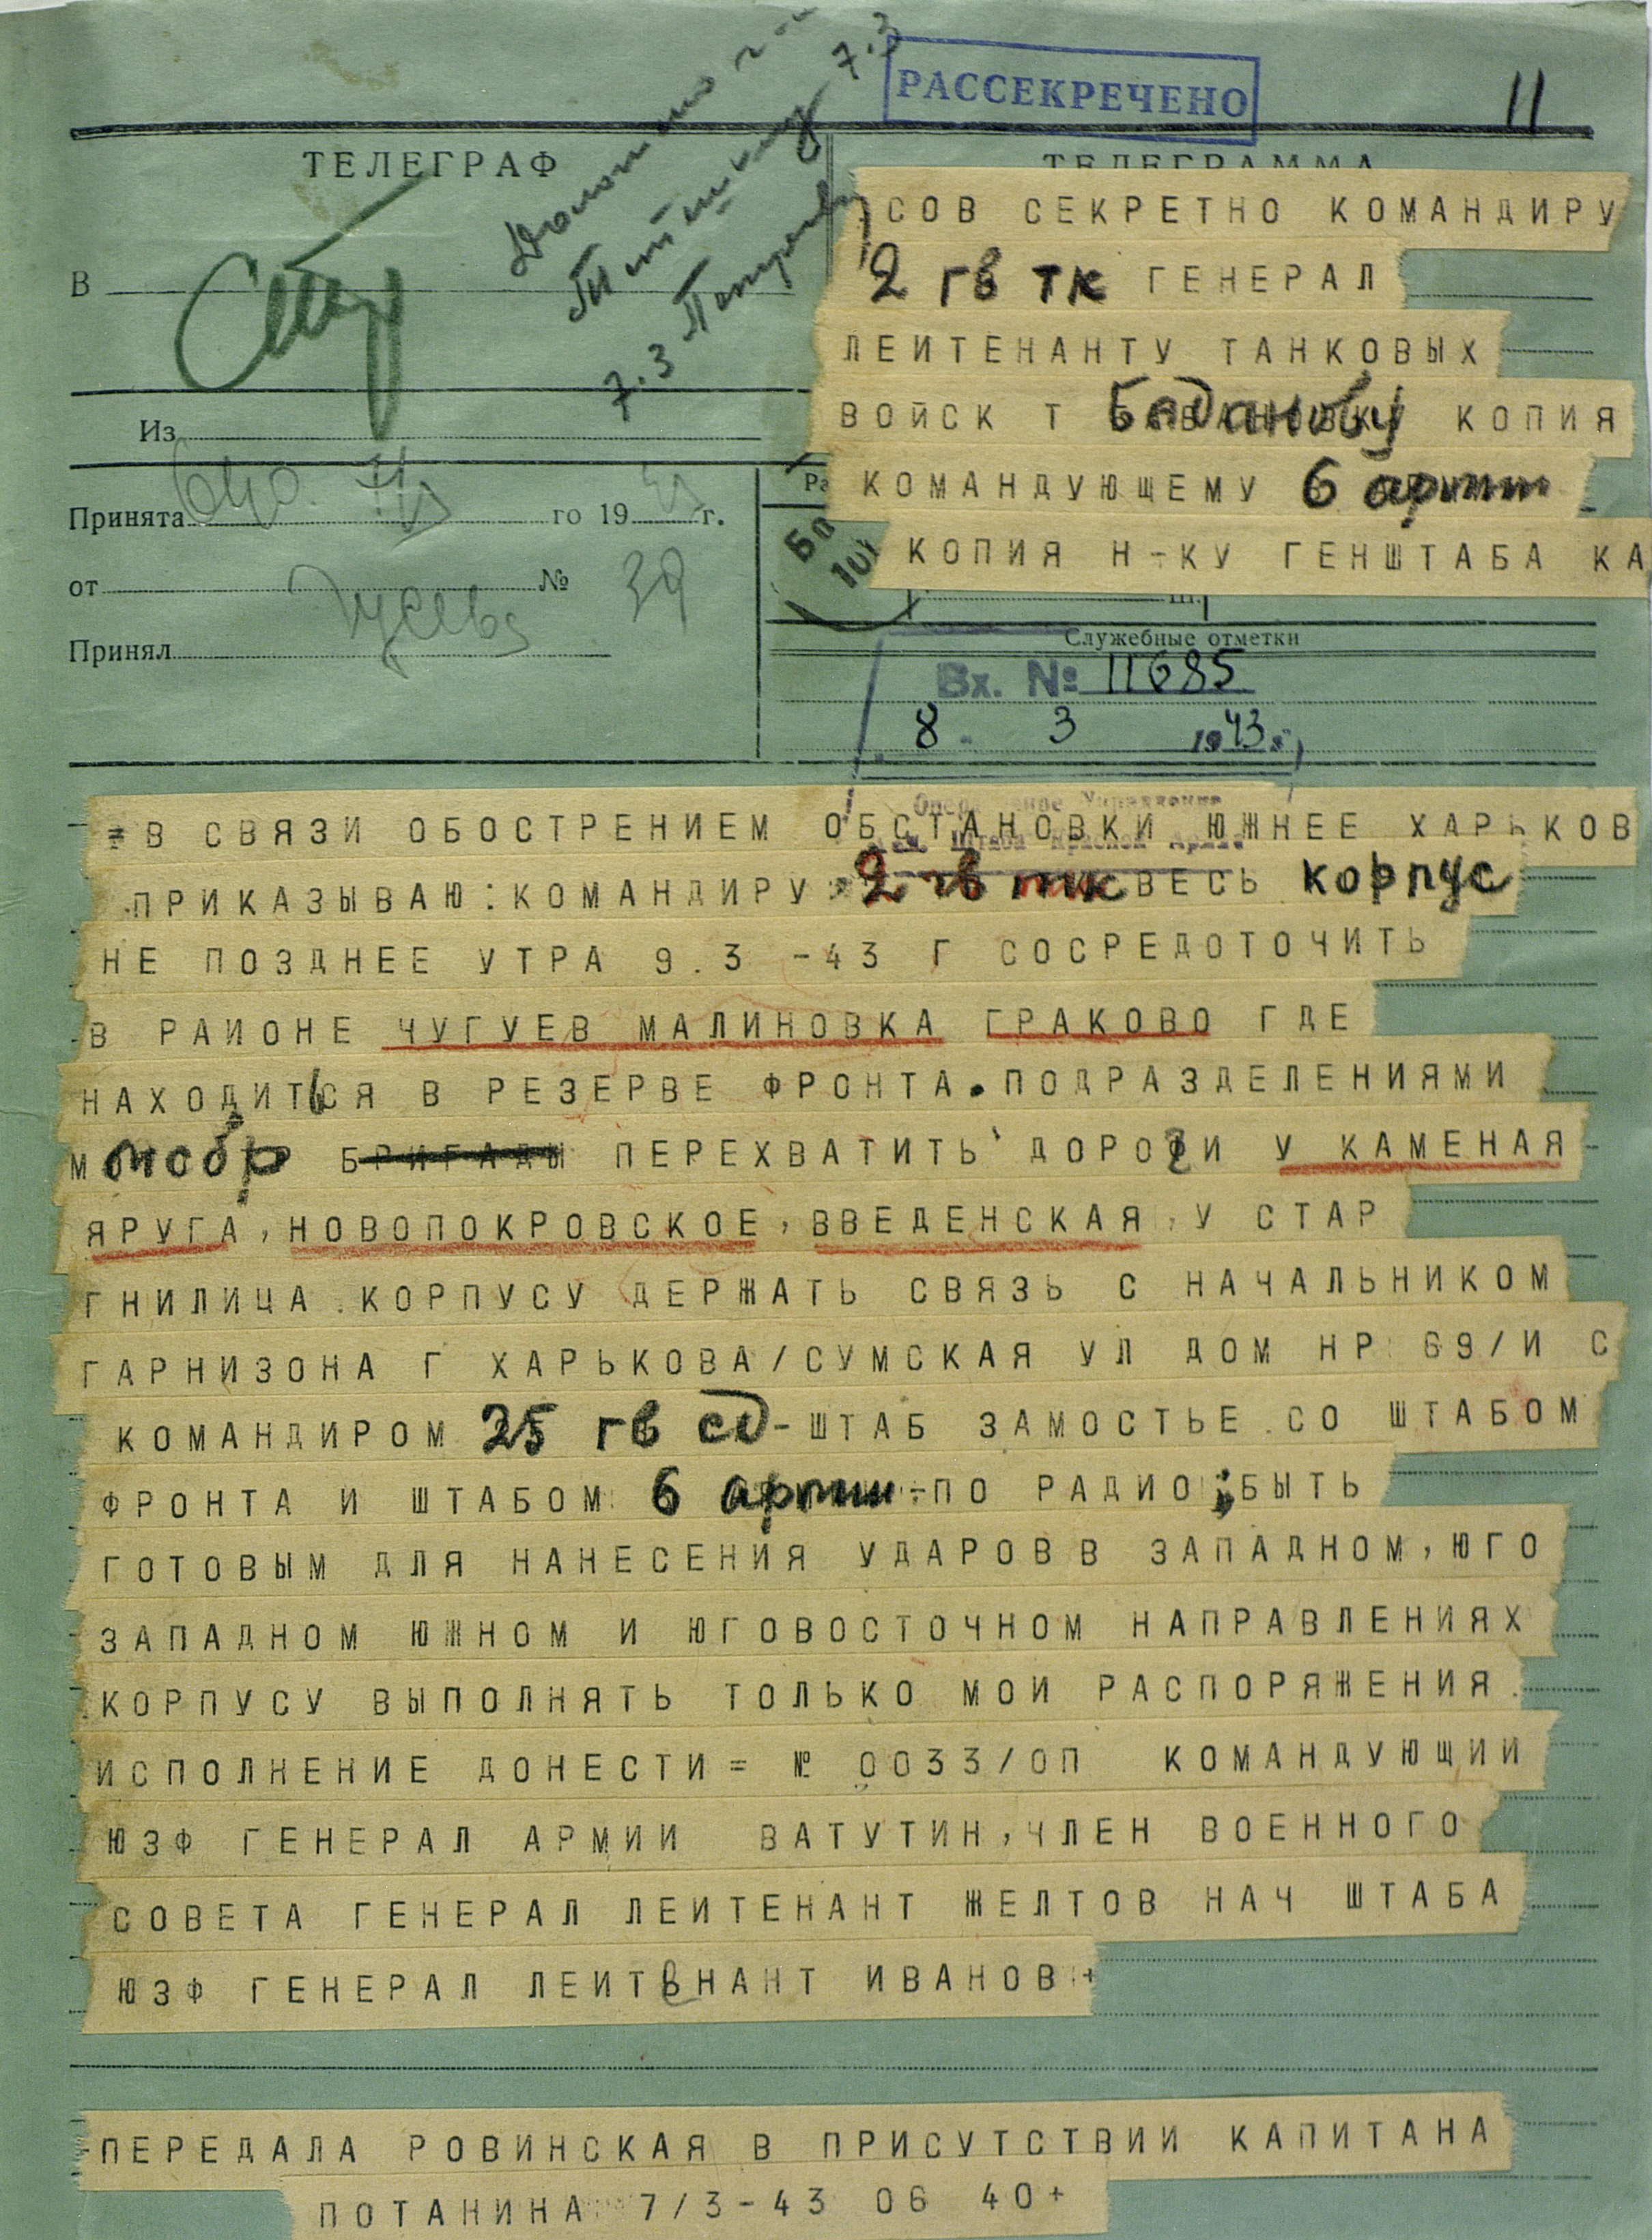 РАССЕКРЕЧЕНО
11
7.3
7.3
ТЕЛЕГРАФ
ТЕЛЕГРАММА
В
Из
Принята го 19 г.
от № 39
Принял
СОВ СЕКРЕТНО КОМАНДИРУ
2 гв тк ГЕНЕРАЛ
ЛЕИТЕНАНТУ ТАНКОВЫХ
ВОЙСК Т Баданову КОПИЯ
КОМАНДУЮЩЕМУ 6 армии
КОПИЯ Н-КУ ГЕНШТАБА КА
Служебные отметки
Вх. № 11685
8 3 1943
=В СВЯЗИ ОБОСТРЕНИЕМ ОБСТАНОВКИ ЮЖНЕЕ ХАРЬКОВ
ПРИКАЗЫВАЮ:КОМАНДИРУ 2 гв тк ВЕСЬ корпус
НЕ ПОЗДНЕЕ УТРА 9.3 -43 Г СОСРЕДОТОЧИТЬ
В РАИОНЕ ЧУГУЕВ МАЛИНОВКА ГРАКОВО ГДЕ
НАХОДИТЬСЯ В РЕЗЕРВЕ ФРОНТА.ПОДРАЗДЕЛЕНИЯМИ
мсбр БРИГАДЫ ПЕРЕХВАТИТЬ ДОРОГИ У КАМЕНАЯ
ЯРУГА, НОВОПОКРОВСКОЕ, ВВЕДЕНСКАЯ, У СТАР
ГНИЛИЦА.КОРПУСУ ДЕРЖАТЬ СВЯЗЬ С НАЧАЛЬНИКОМ
ГАРНИЗОНА Г ХАРЬКОВА/СУМСКАЯ УЛ ДОМ НР 69/И С
КОМАНДИРОМ 25 гв сд-ШТАБ ЗАМОСТЬЕ.СО ШТАБОМ
ФРОНТА И ШТАБОМ 6 армии-ПО РАДИО;БЫТЬ
ГОТОВЫМ ДЛЯ НАНЕСЕНИЯ УДАРОВВ ЗАПАДНОМ,ЮГО
ЗАПАДНОМ ЮЖНОМ И ЮГОВОСТОЧНОМ НАПРАВЛЕНИЯХ
КОРПУСУ ВЫПОЛНЯТЬ ТОЛЬКО МОИ РАСПОРЯЖЕНИЯ.
ИСПОЛНЕНИЕ ДОНЕСТИ= № 0033/ОП КОМАНДУЮЩИИ
ЮЗФ ГЕНЕРАЛ АРМИИ ВАТУТИН,ЧЛЕН ВОЕННОГО
СОВЕТА ГЕНЕРАЛ ЛЕИТЕНАНТ ЖЕЛТОВ НАЧ ШТАБА
ЮЗФ ГЕНЕРАЛ ЛЕИТЕНАНТ ИВАНОВ+
ПЕРЕДАЛА РОВИНСКАЯ В ПРИСУТСТВИИ КАПИТАНА
ПОТАНИНА 7/3-43 06 40+